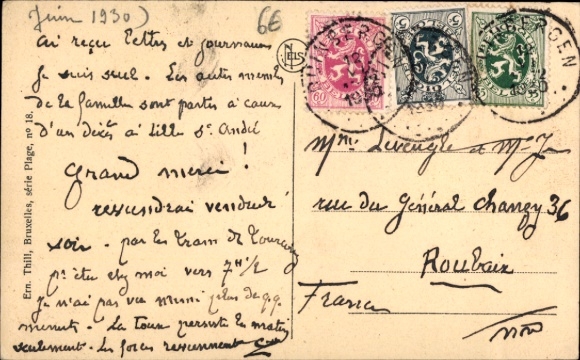 (Juin 1930)
6E
ai reçu lettres et journaux
Je suis seul. Les autres memb
de la famille sont partis à cause
d'un décès à Lille St. André
Grand merci !
reviendrai vendredi
soir - par le train de Tourcoing
chez moi vers 7H 1/2
Je n'ai pas vu plus de qq.
minutes. La toux persiste le matin
seulement. Les forces reviennent
Ern. Thill, Bruxelles, série Plage, nº 18.
NELS
rue du Général Chanzy 36
Roubaix
France
Nord